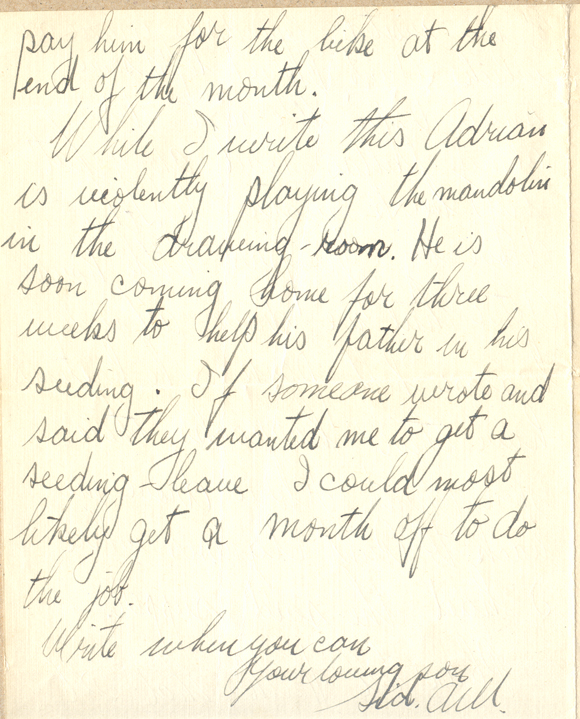 pay him for the bike at the
end of the month.
While I write this Adrian
is violently playing the mandolin
in the drawing-room. He is
soon coming home for three
weeks to help his father in his
seeding. If someone wrote and
said they wanted me to get a
seeding-leave I could most
likely get a month off to do
the job.
Write when you can
Your loving son
Sid.